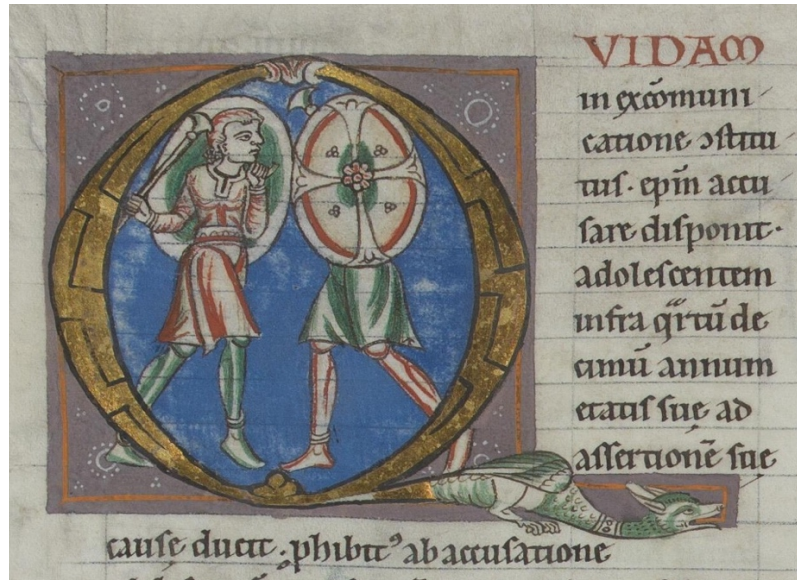 QVIDAM
in excōmuni
catione ↄstitu
tus· ep̄m accu
sare disponit·
adolescentem
infra qͣrtū de
cimū annum
etatis sue ad
assertionē sue
cause ducit· phibitꝰ ab accusatione